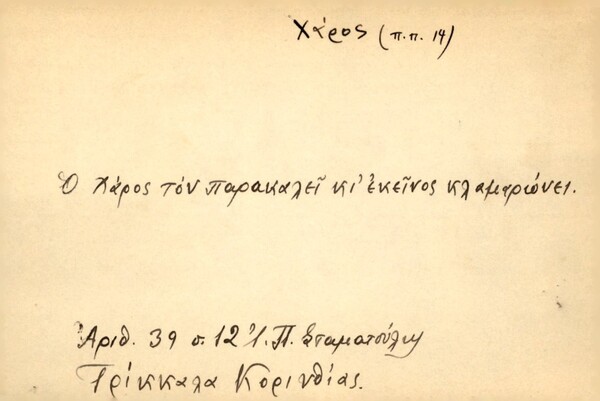 Χάρος (π.π. 14)
Ὁ Χάρος τὸν παρακαλεῖ κι' ἐκεῖνος κλαμαρώνει.
Ἀριθ. 39 σ. 12 Π. Σταματούλη
Τρίκκαλα Κορινθίας.